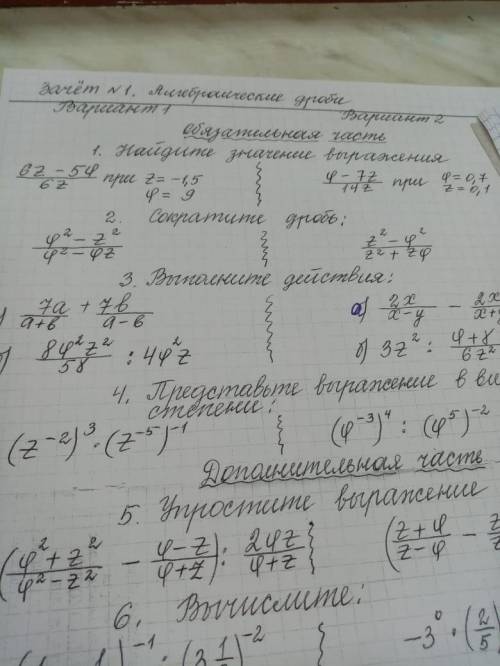 Зачёт №1. Алгебраические дроби
Вариант 1 Вариант 2
Обязательная часть
1. Найдите значение выражения
(6z − 5φ)/(6z) при z = −1,5 φ = 9
(φ − 7z)/(14z) при φ = 0,7 z = 0,1
2. Сократите дробь:
(φ² − z²)/(φ² − φz) (z² − φ²)/(z² + zφ)
3. Выполните действия:
) 7a/(a+в) + 7в/(a−в) а) 2x/(x−y) − 2x/(x+y
) 8φ²z²/58 : 4φ²z б) 3z² : (φ+8)/(6z²)
4. Представьте выражение в ви
степени:
(z⁻²)³ · (z⁻⁵)⁻¹ (φ⁻³)⁴ : (φ⁵)⁻²
Дополнительная часть
5. Упростите выражение
((φ² + z²)/(φ² − z²) − (φ−z)/(φ+z)) : 2φz/(φ+z) ((z+φ)/(z−φ) − z
6. Вычислите:
)⁻¹ · (3 1/ )⁻² −3⁰ · (2/5)